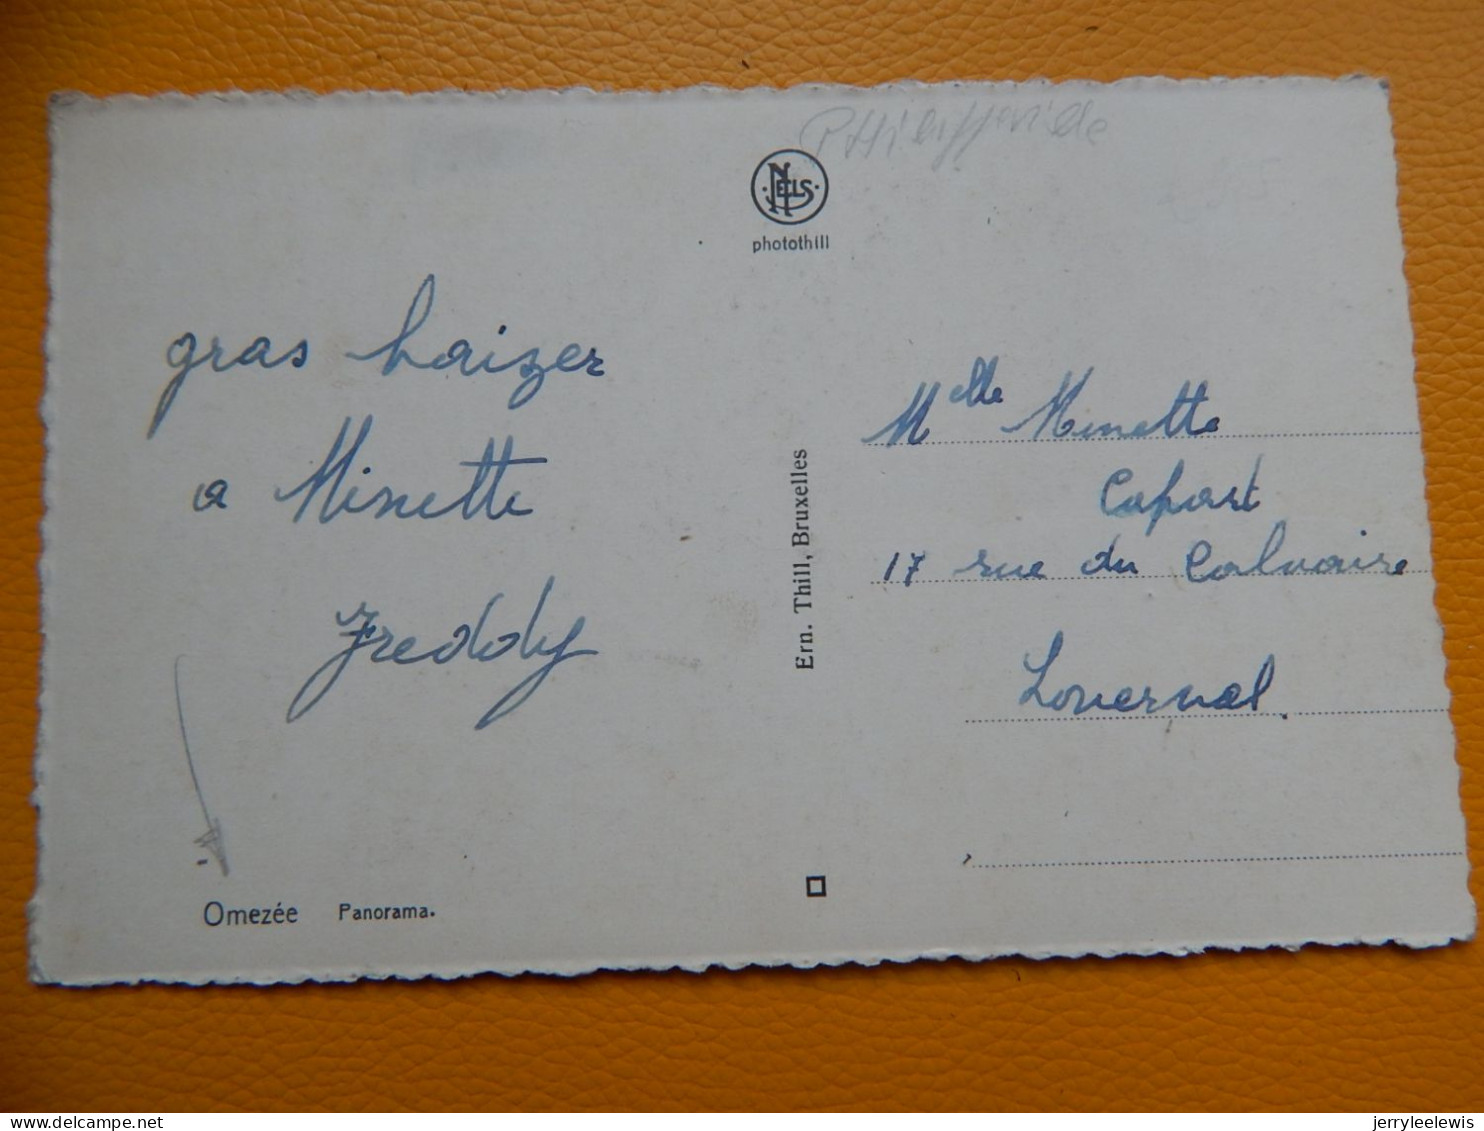 NELS
photothill
gras baizer
a Minette
Freddy
Omezée Panorama.
Ern. Thill, Bruxelles
Melle Minette
Capart
17 rue du Calvaire
Loverval.
delcampe.net
jerryleelewis